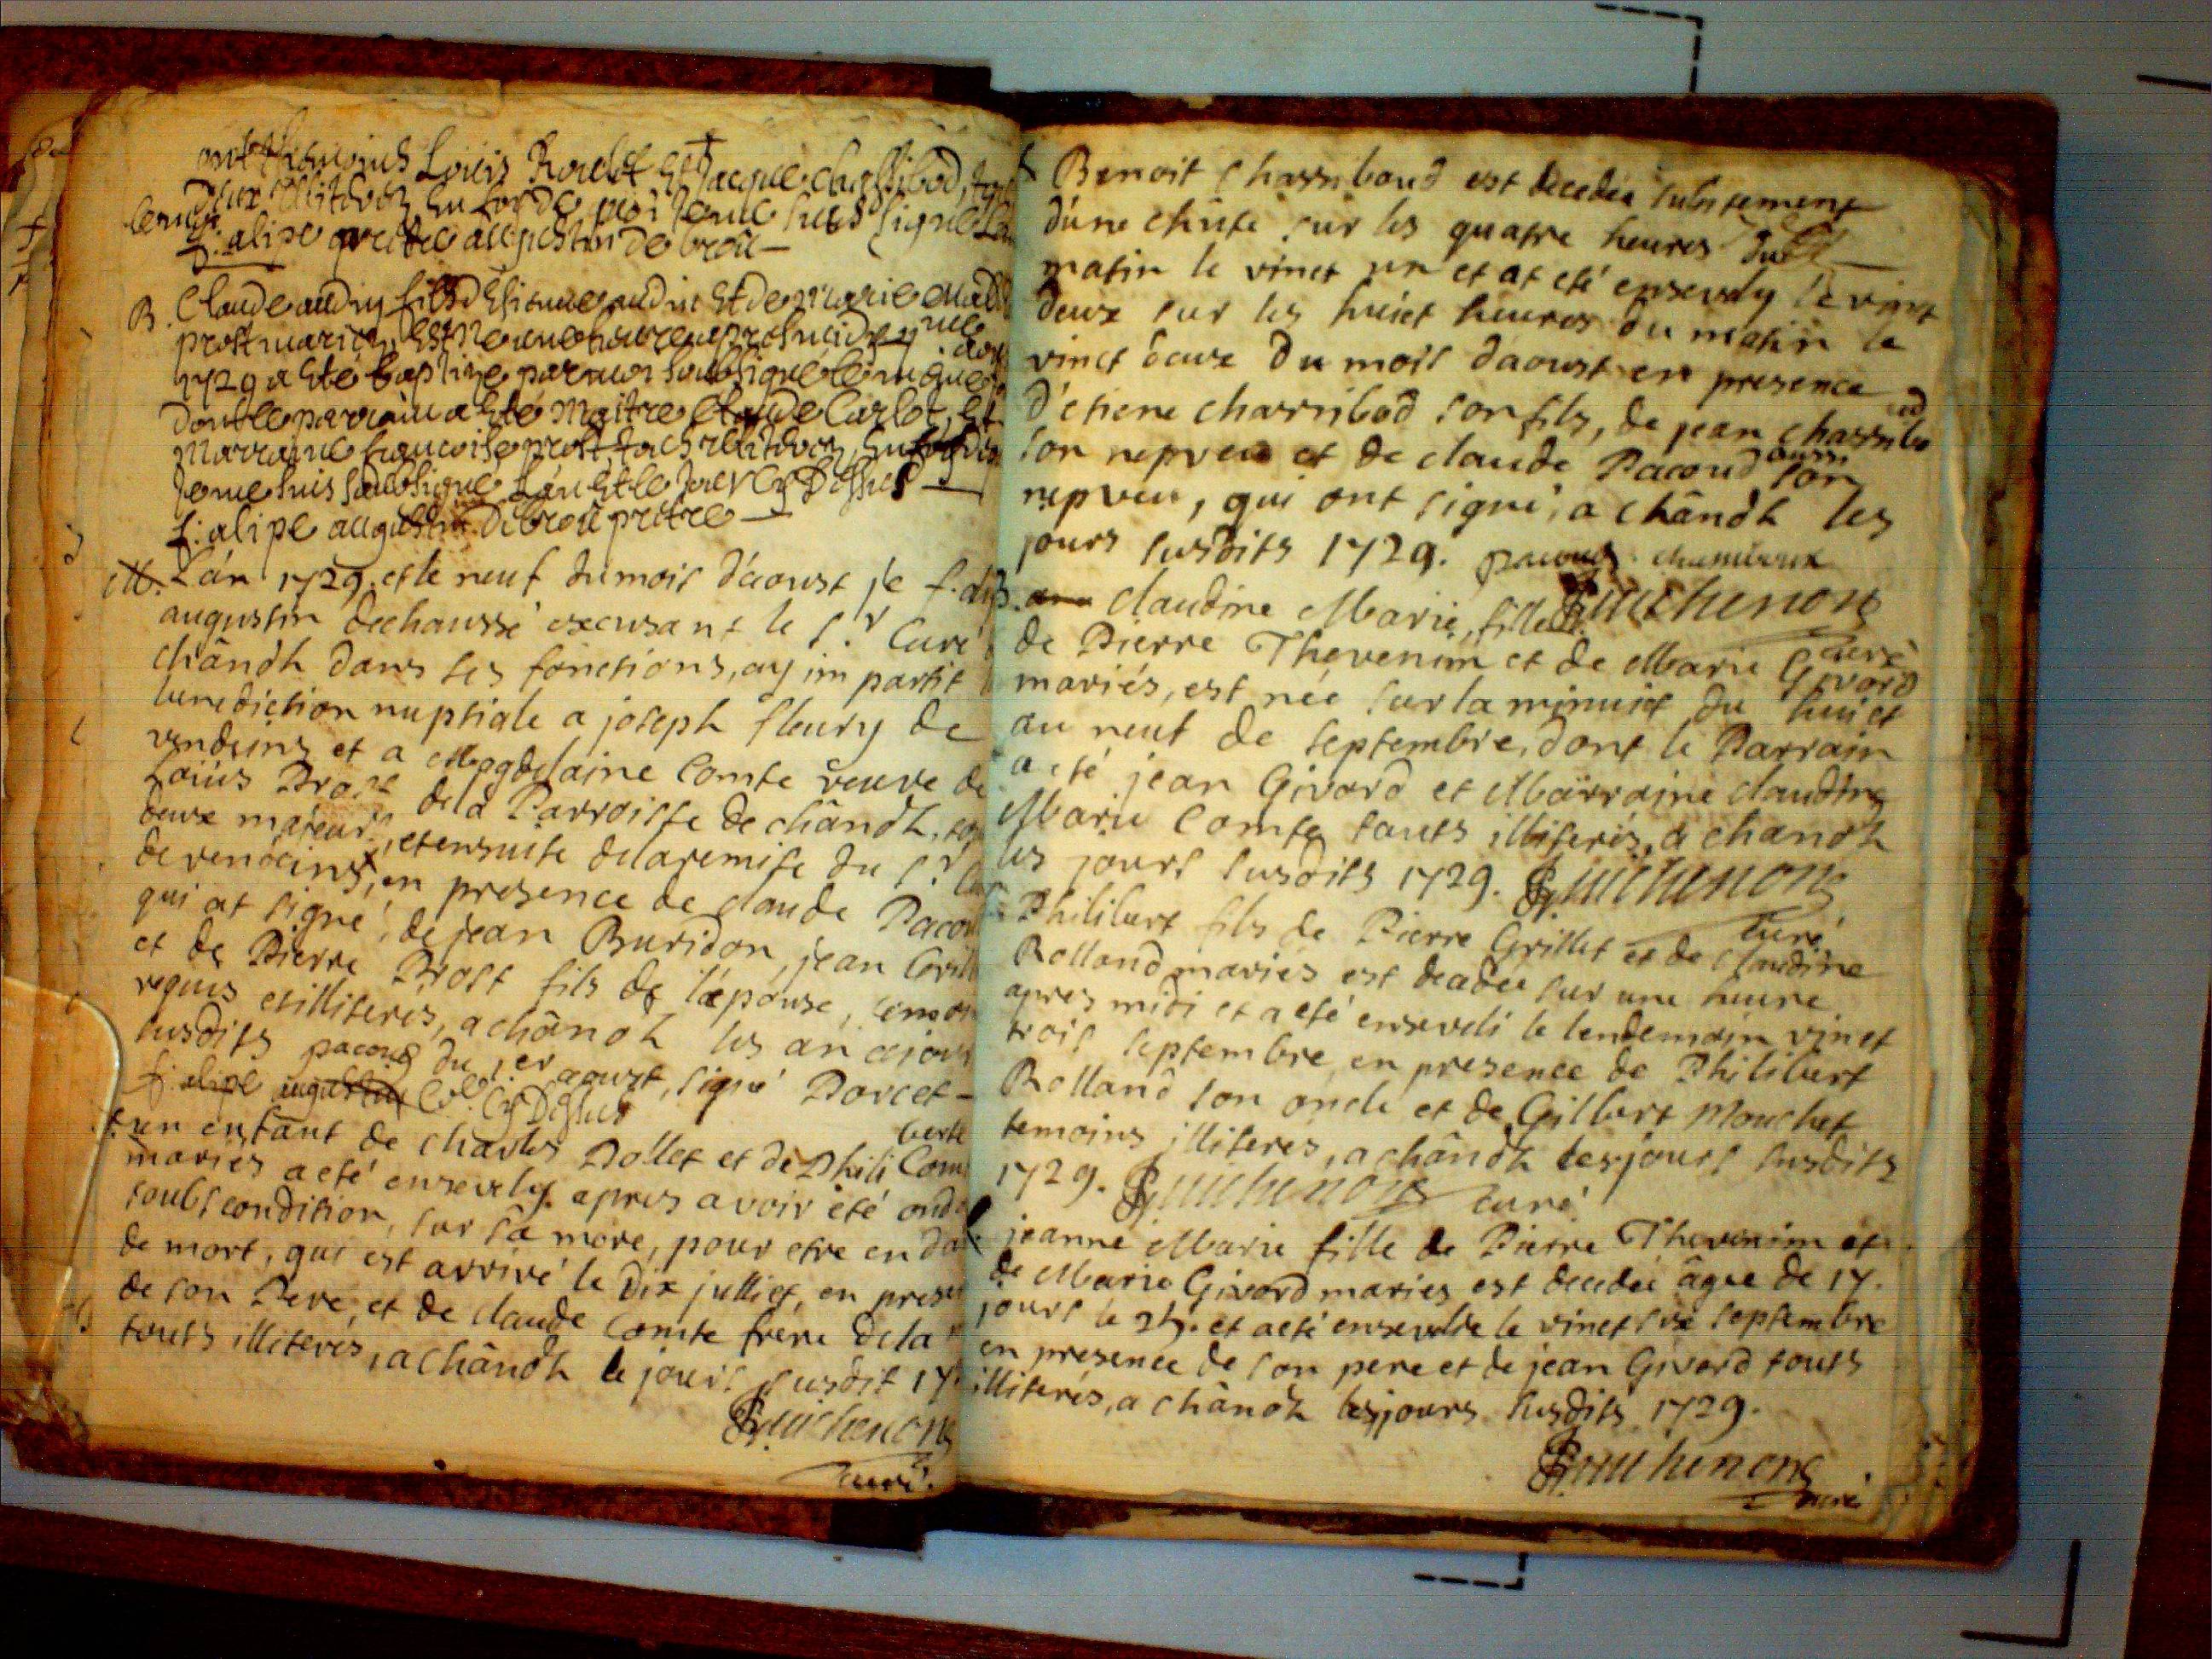 Louis et Jacque chassibod,
deux
f: alipe prêtre augustin de brou
B. Claude audin fils d'Etienne audin et de Marie
prost mariez, est
1729 a été baptizé par moi soubsigné le
dont le parrain a été Maitre Claude Carlot, et
marraine françoise prost
je me suis soubsigné l'an et le jour cy Dessus
f: alipe augustin de brou prêtre
M. L'an 1729. et le neuf du mois d'aoust je f.
augustin dechaussé excusant le s.r Curé
chândh dans ses fonctions, ay im partit
benediction nuptiale a joseph fleury de
vendeins et a Magdelaine Comte veuve de
Loüis Prost de la Parroisse de chândh,
deux majeurs, et ensuite de la remise du s.r
de vendeins, en presence de claude
qui at signé, de jean Buridon, jean
et de Pierre Prost fils de l'épouse,
requis et illiterés, a chândh les an
susdits pacoud du 1.er aoust, signé Dorcet
f: alipe augustin cy Dessus
+ un enfant de charles Dollet et de Phili berte
mariés a eté ensevely apres avoir été
soubs condition, sur sa mere, pour etre en
de mort, qui est arrivé le dix julliet, en
de son Pere, et de claude Comte frere de la
touts illiterés, a chândh le jours susdit
Guichenon
curé.
+ Benoit Charribaud est decedée subitement
d'une chûte sur les quatre heures du
matin le vinct un et at eté ensevely le vinct
deux sur les huict heures du matin le
vinct deux du mois daoust en presence
d'etiene charribod son fils, de jean charribod
son nepveu et de claude Pacoud aussi son
nepveu, qui ont signé, a chândh les
jours susdits 1729. pacoud
claudine Marie, fille Guichenon
curé
de Pierre Thevenim et de Marie Givord
mariés, est née sur la minuict du huict
au neuf de septembre, dont le Parrain
a eté jean Givord et Marraine claudine
Marie Comte touts illiterés, a chandh
les jours susdits 1729. Guichenon
curé
Philibert fils de Pierre Grillet et de claudine
Rolland mariés est decedée sur une heure
apres midi et a eté enseveli le lendemain vinct
trois septembre, en presence de Philibert
Rolland son oncle et de Gilbert Mouchet
temoins illiteres, a chândh les jours susdits
1729. Guichenon curé
jeanne Marie fille de Pierre Thevenim et
de Marie Givord mariés est decedée âgée de 17.
jours le 25. et a eté ensevelie le vinct six septembre
en presence de son pere et de jean Givord touts
illiterés, a chândh les jours susdits 1729.
Guichenon
curé